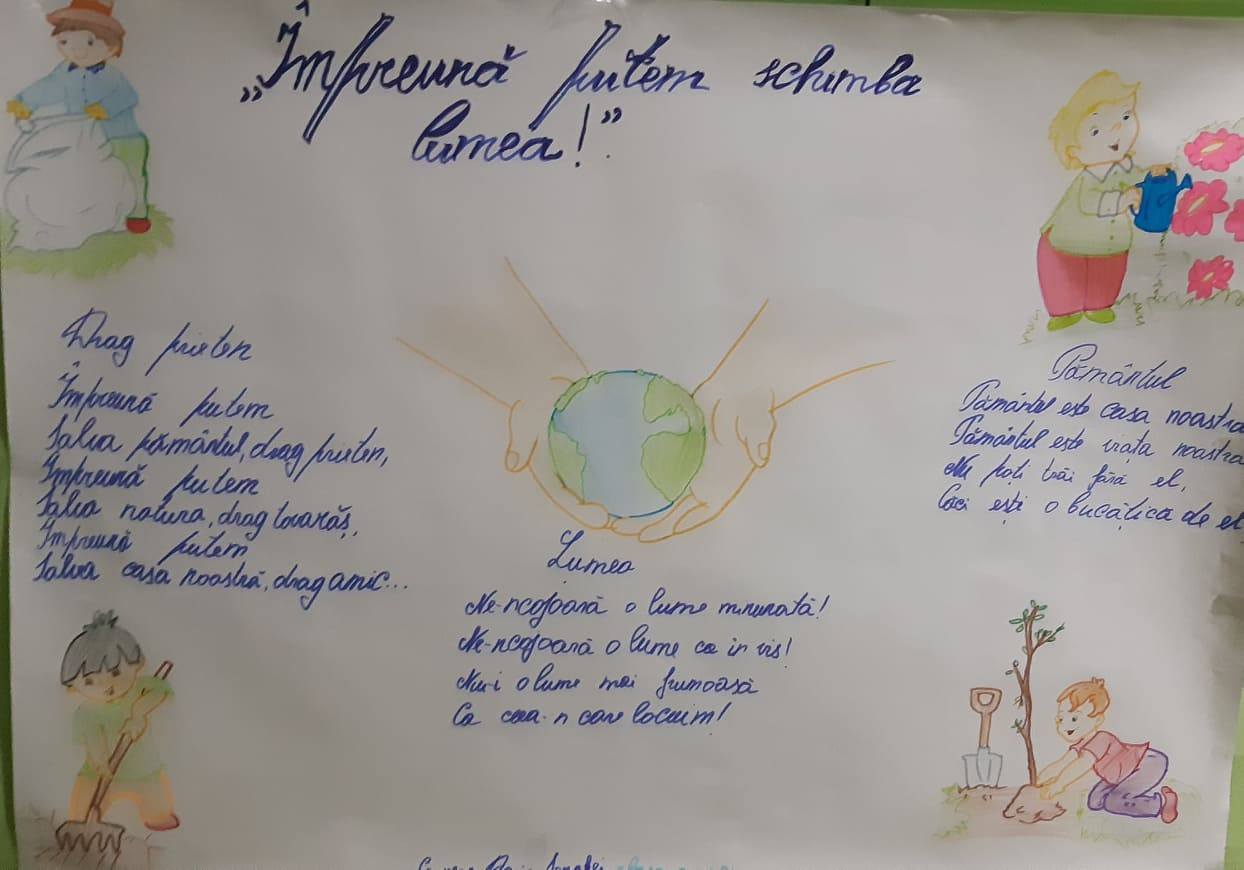 „Împreună putem schimba
lumea!".
Drag prieten
Împreună putem
Salva pământul, drag prieten,
Împreună putem
Salva natura, drag tovarăș,
Împreună putem
Salva casa noastră, drag amic...
Lumea
Ne-nconjoară o lume minunată!
Ne-nconjoară o lume ca in vis!
Nu-i o lume mai frumoasă
Ca cea-n care locuim!
Pământul
Pământul este casa noastra
Pământul este viata noastra
Nu poti trăi fără el,
Căci ești o bucățica de el